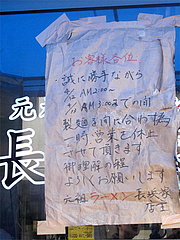 お客様各位
誠に勝手ながら
4/ AM2:00〜
4/ AM3:00までの間
製麺を間に合わす為
一時営業を休止
させて頂きます
御理解の程
よろしくお願いします
元祖ラーメン長浜家
店主
元
長